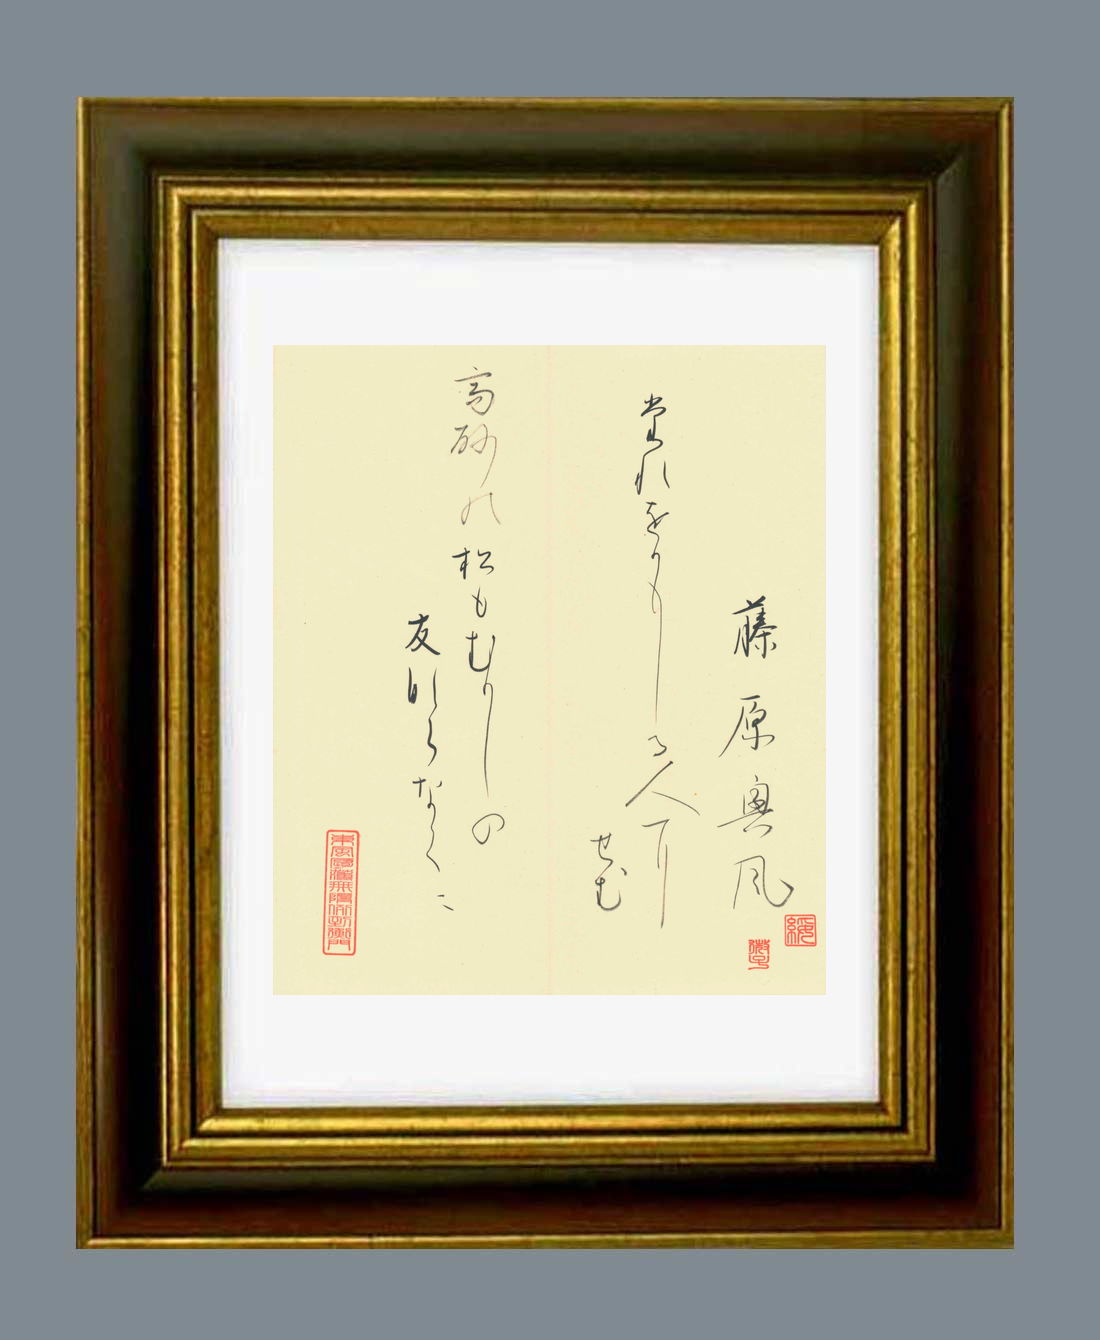 藤原興風
堂れをかもしる人に
せむ
高砂の松もむかしの
友ならなくに